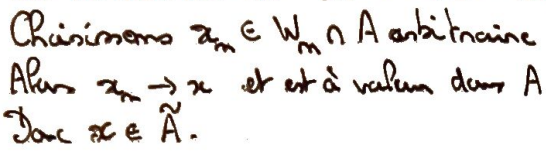 Choisissons xₘ ∈ Wₘ ∩ A arbitraire
Alors xₘ → x et est à valeurs dans A
Donc x ∈ Ã.